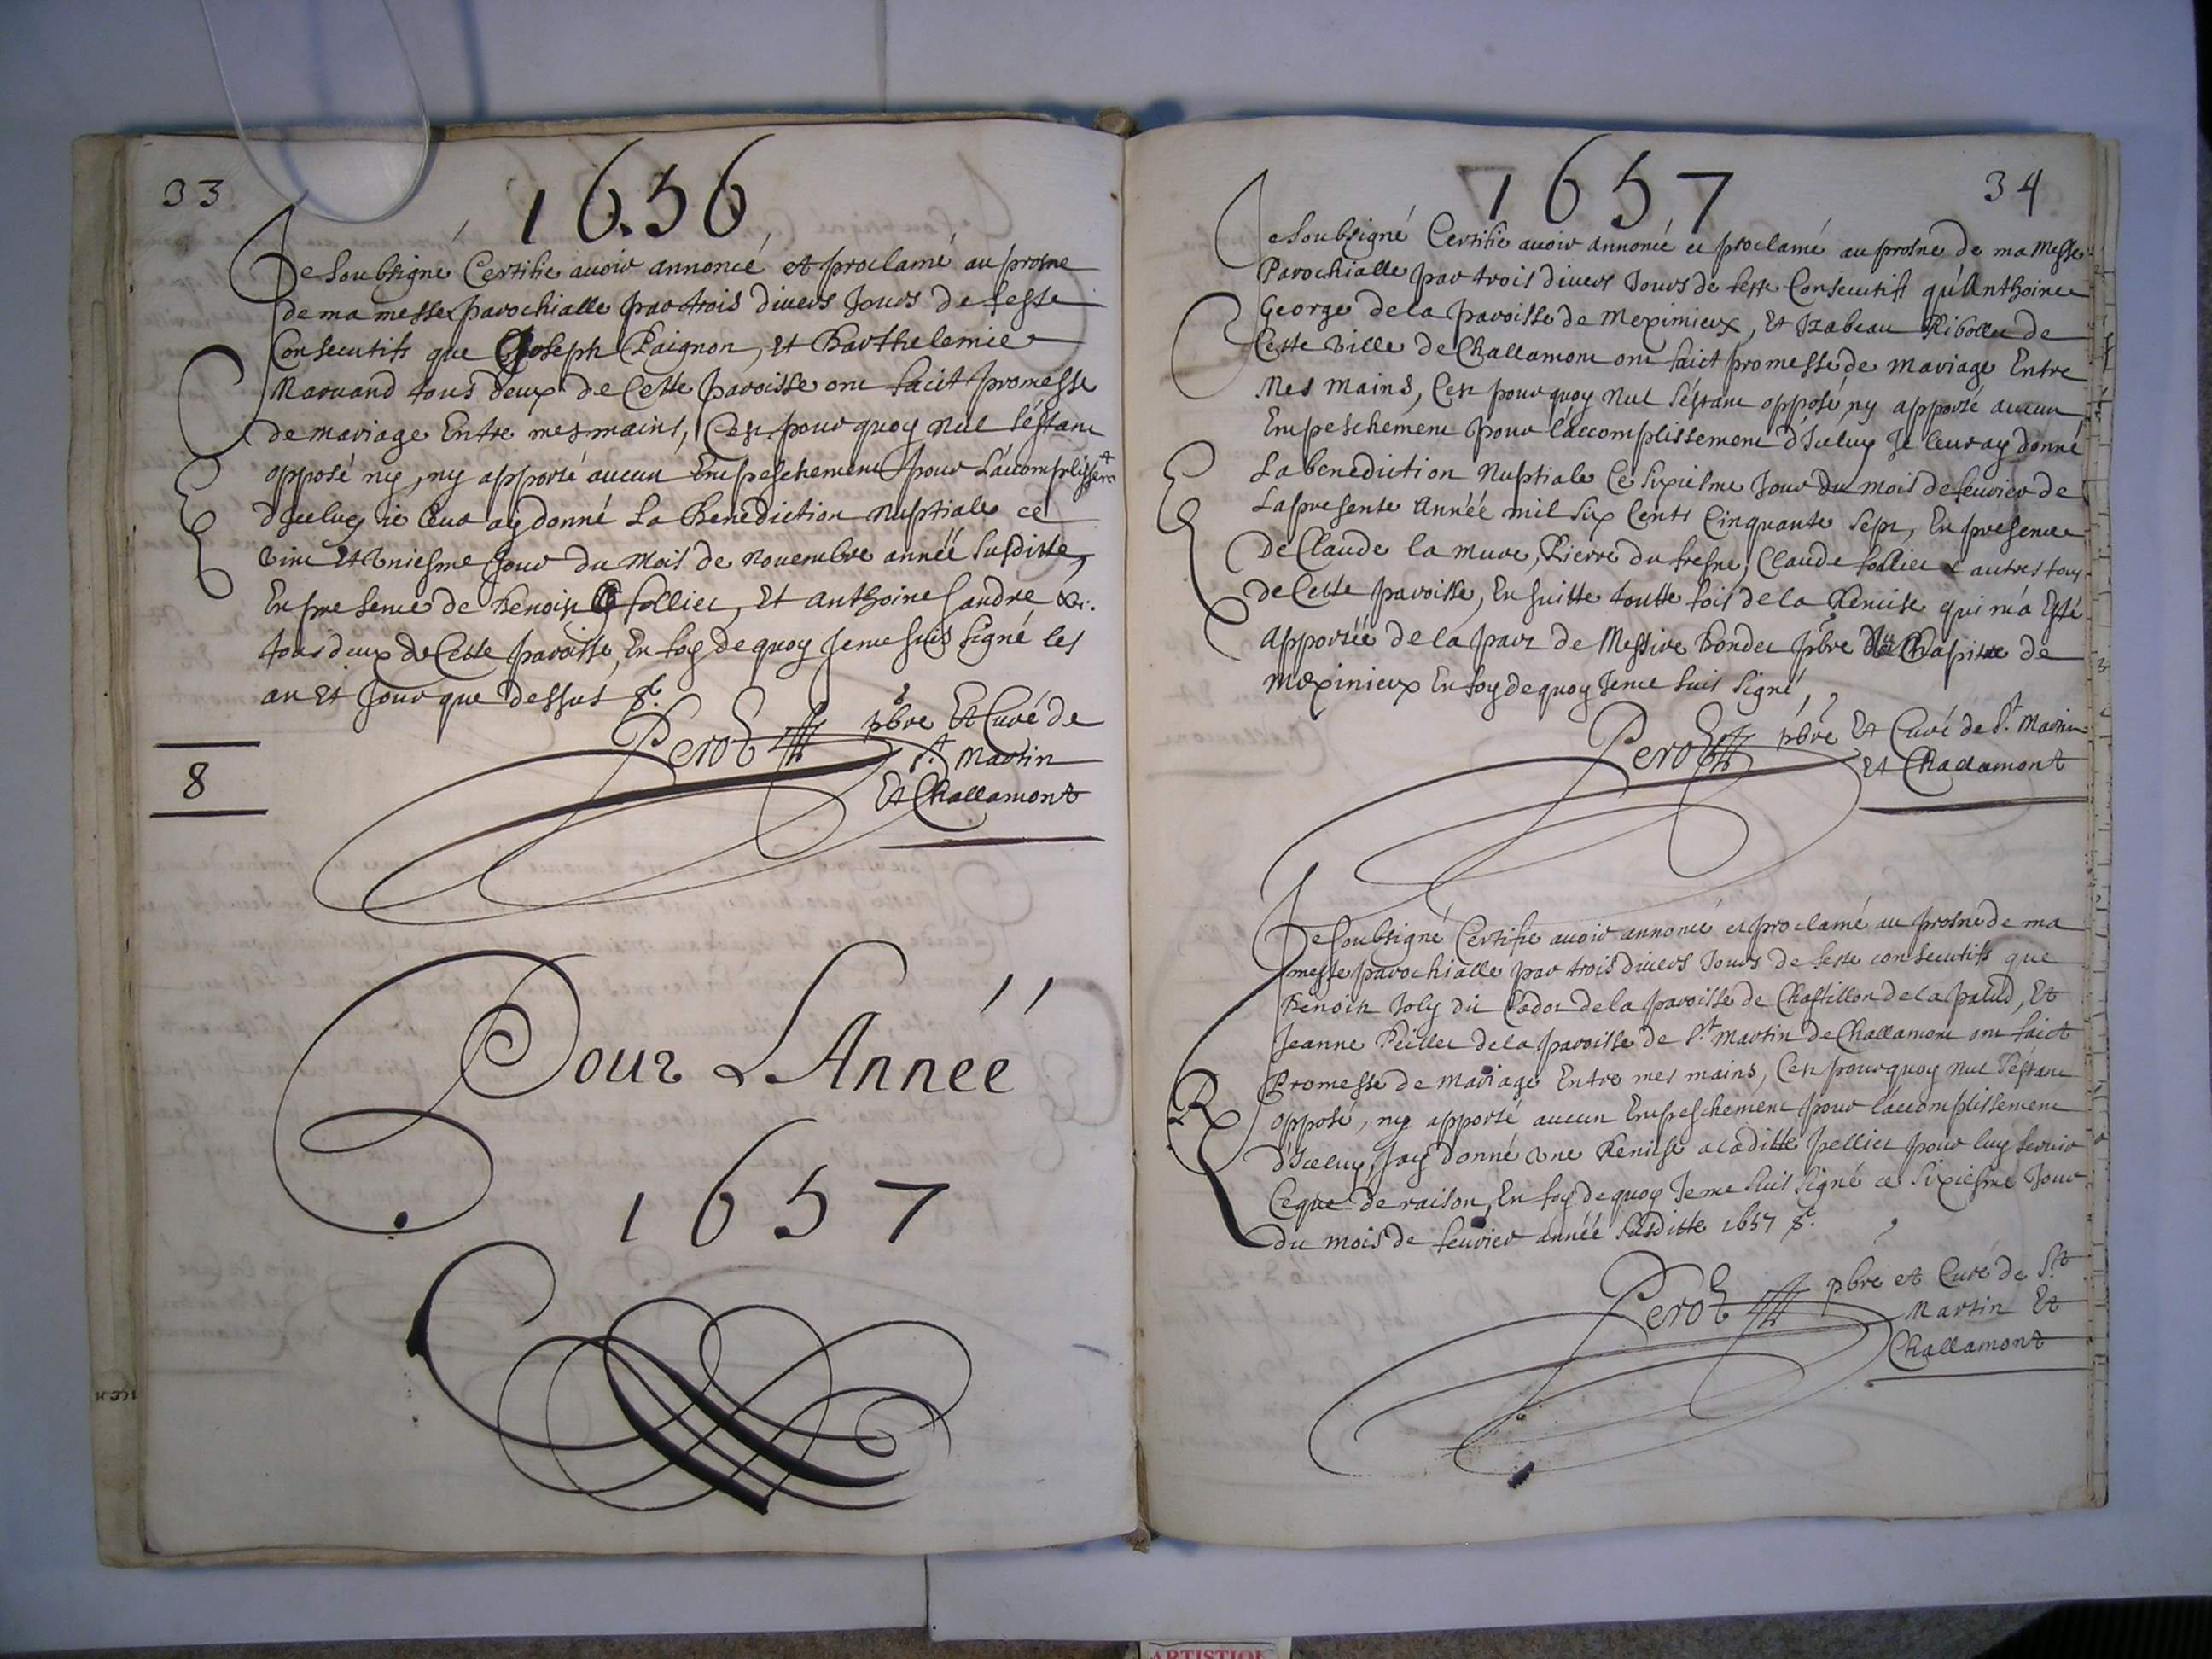 33
1656
Je Soubsigné Certifie auoir annoncé et proclamé au prosne
de ma messe parochialle par trois diuers Jours de feste
Consecutifs que Joseph Paignon, et Barthelemie
Maruand tous deux de Cette paroisse ont faict promesse
de mariage Entre mes mains, C'est pourquoy nul s'éstant
opposé ny, ny apporté aucun Empeschement pour L'accomplissemt
d'Iceluy ie leur ay donné La Benediction nuptiale ce
vint et vniesme Jour du Mois de nouembre année susditte,
En presence de Benoist follier, Et anthoine Sandre &c.
tous deux de Cette paroisse, En foy de quoy Je me suis signé les
an Et Jour que dessus &c.
Perot pbre Et Curé de
St. Martin
Et Challamont
8
Pour L'Année
1657
1657
34
Je Soubsigné Certifie auoir annoncé et proclamé au prosne de ma Messe
Parochialle par trois diuers Jours de feste Consecutifs qu'Anthoine
George de la paroisse de Meximieux, Et Izabeau Ribollet de
Cette ville de Challamont ont faict promesse de mariage Entre
Mes mains, C'est pourquoy nul s'éstant opposé, ny apporté aucun
Empeschement pour l'accomplissement d'Iceluy Je leur ay donné
La benediction Nuptiale Ce sixiesme Jour du mois de feurier de
La presente Année mil six Cents Cinquante sept, En presence
De Claude la mure, Pierre du fresne, Claude follier & autres tous
de Cette paroisse, En suitte toutte fois de la Remise qui m'a Esté
Apportée de la part de Messire Bondet pbre Chapitre de
Meximieux En foy de quoy Je me suis signé,
Perot pbre Et Curé de St. Martin
Et Challamont
Je Soubsigné Certifie auoir annoncé et proclamé au prosne de ma
messe parochialle par trois diuers Jours de feste consecutifs que
Benoist Joly dit Cadot de la paroisse de Chastillon de la palud, Et
Jeanne Peillet de la paroisse de St. Martin de Challamont ont faict
Promesse de mariage Entre mes mains, C'est pourquoy nul s'éstant
opposé, ny apporté aucun Empeschement pour l'accomplissement
d'Iceluy, J'ay donné vne Remise a laditte pellier pour luy seruir
Ce que de raison, En foy de quoy Je me suis signé ce sixiesme Jour
du mois de feurier année susditte 1657 &c.
Perot pbre et Curé de St
Martin Et
Challamont
ARTISTIQ